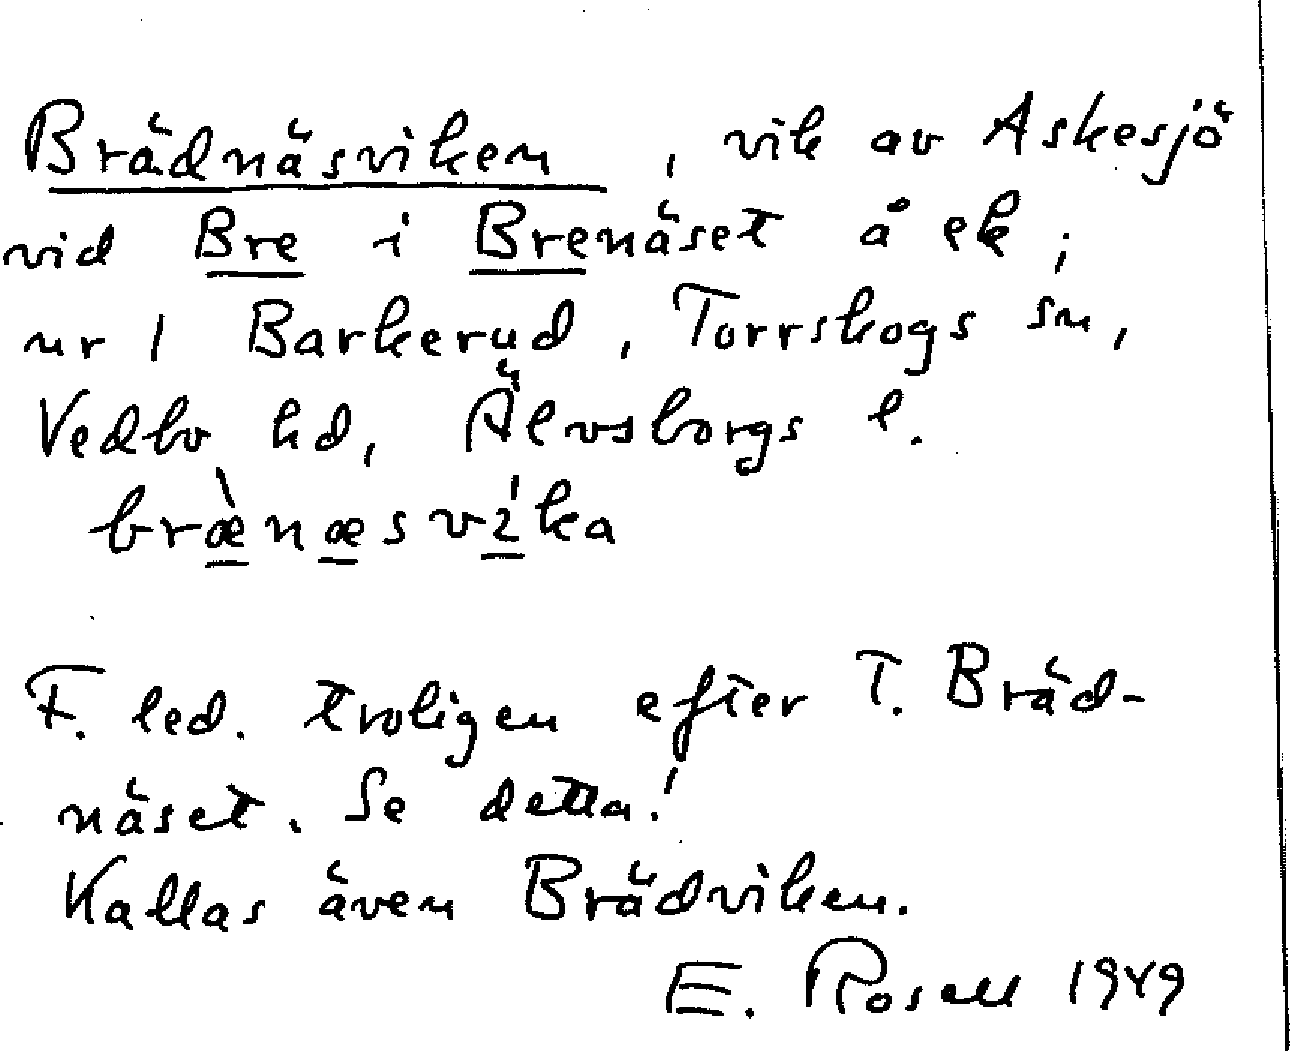 Brädnäsviken, vik av Askesjö
vid Bre i Brenäset å ek;
nr 1 Barkerud, Torrskogs sn,
Vedbo hd, Älvsborgs l.
brǽnæsvika
F. led. troligen efter T. Bräd-
näset. Se detta!
Kallas även Brädviken.
E. Rosell 1949